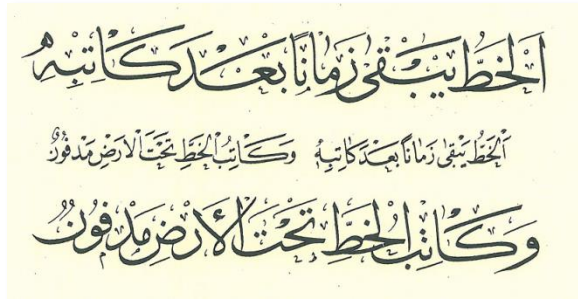 اَلْخَطُّ يَبْقٰى زَمَانًا بَعْدَ كَاتِبِهِ
اَلْخَطُّ يَبْقٰى زَمَانًا بَعْدَ كَاتِبِهِ وَكَاتِبُ الْخَطِّ تَحْتَ الْاَرْضِ مَدْفُوْنُ
وَكَاتِبُ الْخَطِّ تَحْتَ الْأَرْضِ مَدْفُوْنُ